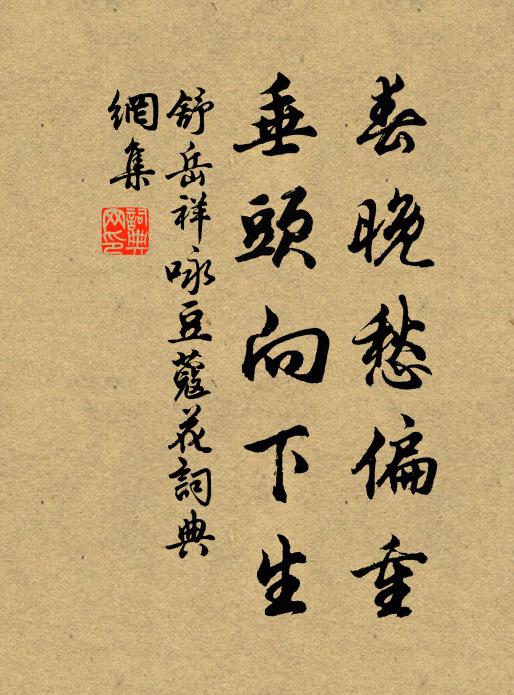 春晚愁偏重
垂頭向下生
舒岳祥咏豆蔻花詞典
網集
詞典
网印